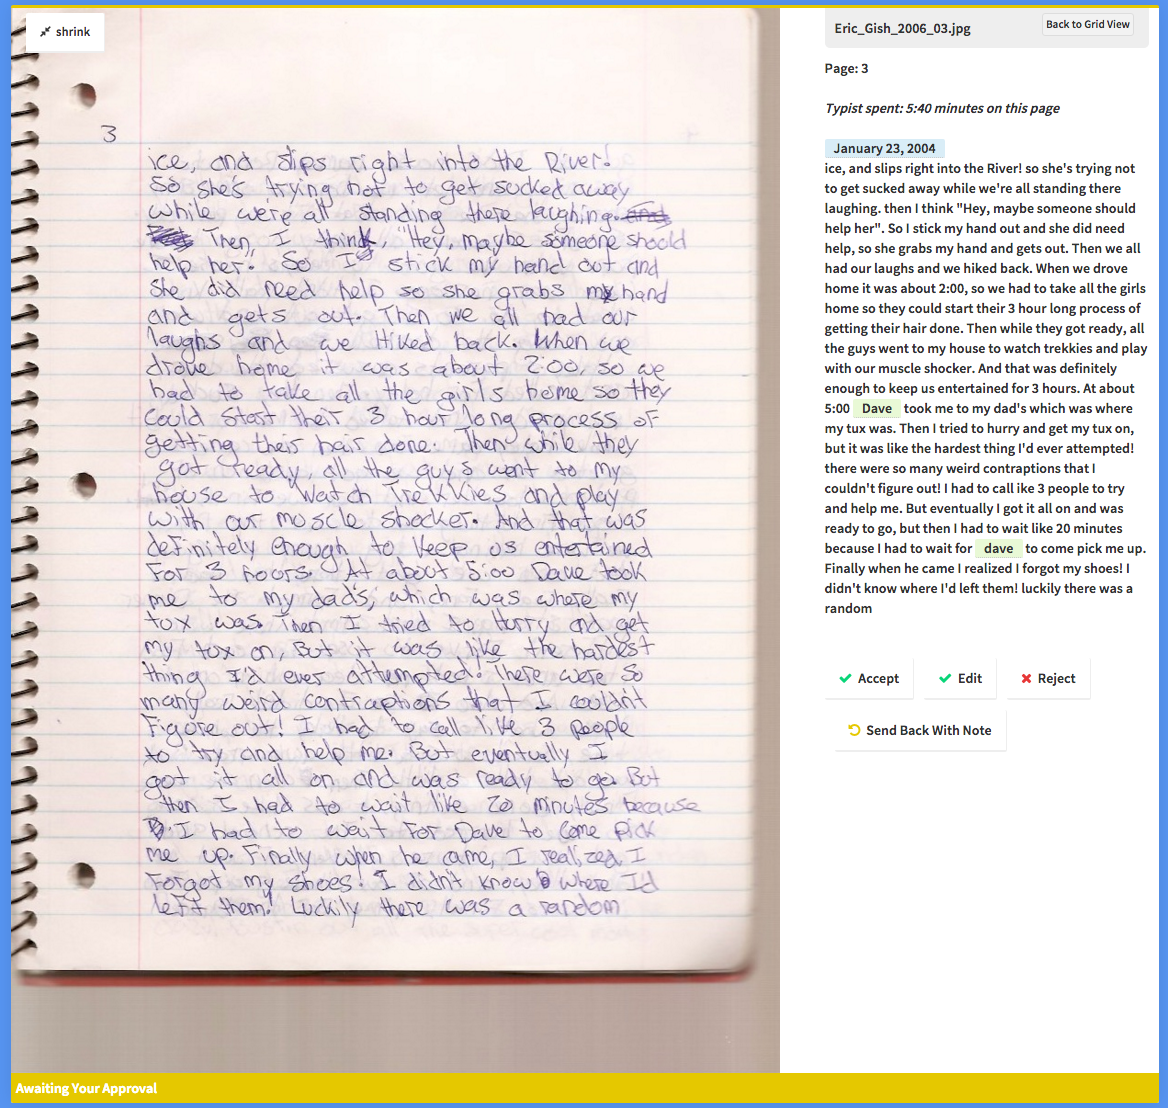 shrink
3
ice, and slips right into the River!
So she's trying not to get sucked away
while we're all standing there laughing. and
Then, I think, "Hey, maybe someone should
help her." So I stick my hand out and
She did need help so she grabs my hand
and gets out. Then we all had our
laughs and we Hiked back. When we
drove home it was about 2:00, so we
had to take all the girls home so they
Could start their 3 hour long process of
getting their hair done. Then while they
got ready, all the guys went to my
house to Watch Trekkies and play
with our muscle shocker. And that was
definitely enough to keep us entertained
For 3 hours. At about 5:00 Dave took
me to my dad's, which was where my
tux was. Then I tried to Hurry and get
my tux on, But it was like the hardest
thing I'd ever attempted! There were so
many weird contraptions that I couldn't
Figure out! I had to call like 3 people
to try and help me. But eventually I
got it all on and was ready to go. But
then I had to wait like 20 minutes because
I had to wait For Dave to Come pick
me up. Finally when he came, I realized I
Forgot my shoes! I didn't know where I'd
left them! Luckily there was a random
Eric_Gish_2006_03.jpg
Back to Grid View
Page: 3
Typist spent: 5:40 minutes on this page
January 23, 2004
ice, and slips right into the River! so she's trying not
to get sucked away while we're all standing there
laughing. then I think "Hey, maybe someone should
help her". So I stick my hand out and she did need
help, so she grabs my hand and gets out. Then we all
had our laughs and we hiked back. When we drove
home it was about 2:00, so we had to take all the girls
home so they could start their 3 hour long process of
getting their hair done. Then while they got ready, all
the guys went to my house to watch trekkies and play
with our muscle shocker. And that was definitely
enough to keep us entertained for 3 hours. At about
5:00 Dave took me to my dad's which was where
my tux was. Then I tried to hurry and get my tux on,
but it was like the hardest thing I'd ever attempted!
there were so many weird contraptions that I
couldn't figure out! I had to call ike 3 people to try
and help me. But eventually I got it all on and was
ready to go, but then I had to wait like 20 minutes
because I had to wait for dave to come pick me up.
Finally when he came I realized I forgot my shoes! I
didn't know where I'd left them! luckily there was a
random
Accept
Edit
Reject
Send Back With Note
Awaiting Your Approval